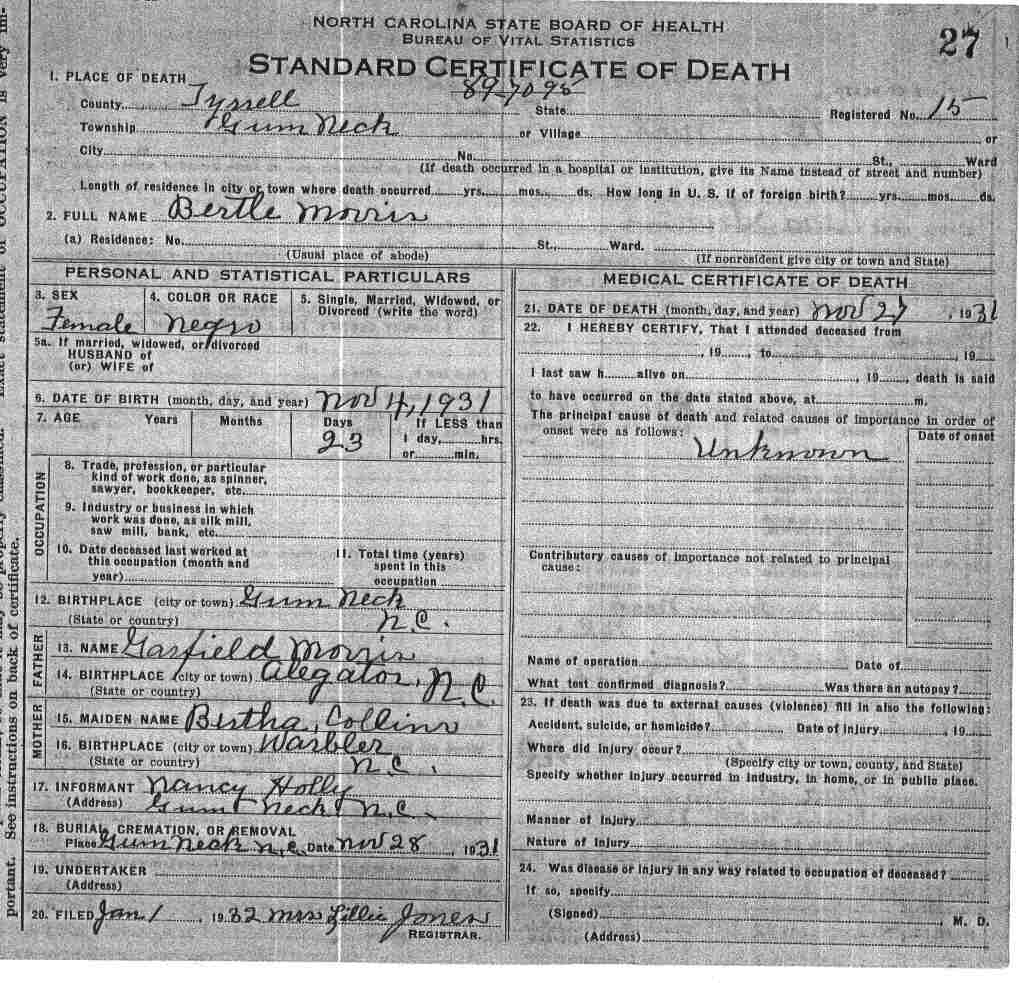 NORTH CAROLINA STATE BOARD OF HEALTH
BUREAU OF VITAL STATISTICS
27
STANDARD CERTIFICATE OF DEATH
1. PLACE OF DEATH
89-70 95
County Tyrrell State Registered No. 15
Township Gum Neck or Village or
City No. St., Ward
(If death occurred in a hospital or institution, give its Name instead of street and number)
Length of residence in city or town where death occurred yrs. mos. ds. How long in U. S. if of foreign birth? yrs. mos. ds.
2. FULL NAME Bertle Morris
(a) Residence: No. St., Ward.
(Usual place of abode) (If nonresident give city or town and State)
PERSONAL AND STATISTICAL PARTICULARS
3. SEX 4. COLOR OR RACE 5. Single, Married, Widowed, or
Divorced (write the word)
Female Negro
5a. If married, widowed, or divorced
HUSBAND of
(or) WIFE of
6. DATE OF BIRTH (month, day, and year) Nov 4, 1931
7. AGE Years Months Days If LESS than
23 1 day, hrs.
or min.
OCCUPATION
8. Trade, profession, or particular
kind of work done, as spinner,
sawyer, bookkeeper, etc.
9. Industry or business in which
work was done, as silk mill,
saw mill, bank, etc.
10. Date deceased last worked at
this occupation (month and
year)
11. Total time (years)
spent in this
occupation
12. BIRTHPLACE (city or town) Gum Neck
(State or country) N.C.
FATHER
13. NAME Garfield Morris
14. BIRTHPLACE (city or town) Alegator, N.C.
(State or country)
MOTHER
15. MAIDEN NAME Bertha Collins
16. BIRTHPLACE (city or town) Warbler
(State or country) N.C.
17. INFORMANT Nancy Holly
(Address) Gum Neck N.C.
18. BURIAL, CREMATION, OR REMOVAL
Place Gum Neck N.C. Date Nov 28, 1931
19. UNDERTAKER
(Address)
20. FILED Jan 1, 1932 Mrs Lillie Jones
REGISTRAR.
MEDICAL CERTIFICATE OF DEATH
21. DATE OF DEATH (month, day, and year) Nov 27, 1931
22. I HEREBY CERTIFY, That I attended deceased from
, 19 , to , 19
I last saw h alive on , 19 , death is said
to have occurred on the date stated above, at m.
The principal cause of death and related causes of importance in order of
onset were as follows: Date of onset
Unknown
Contributory causes of importance not related to principal
cause:
Name of operation Date of
What test confirmed diagnosis? Was there an autopsy?
23. If death was due to external causes (violence) fill in also the following:
Accident, suicide, or homicide? Date of injury , 19
Where did injury occur?
(Specify city or town, county, and State)
Specify whether injury occurred in industry, in home, or in public place.
Manner of injury
Nature of injury
24. Was disease or injury in any way related to occupation of deceased?
If so, specify
(Signed) M. D.
(Address)
portant. See instructions on back of certificate.